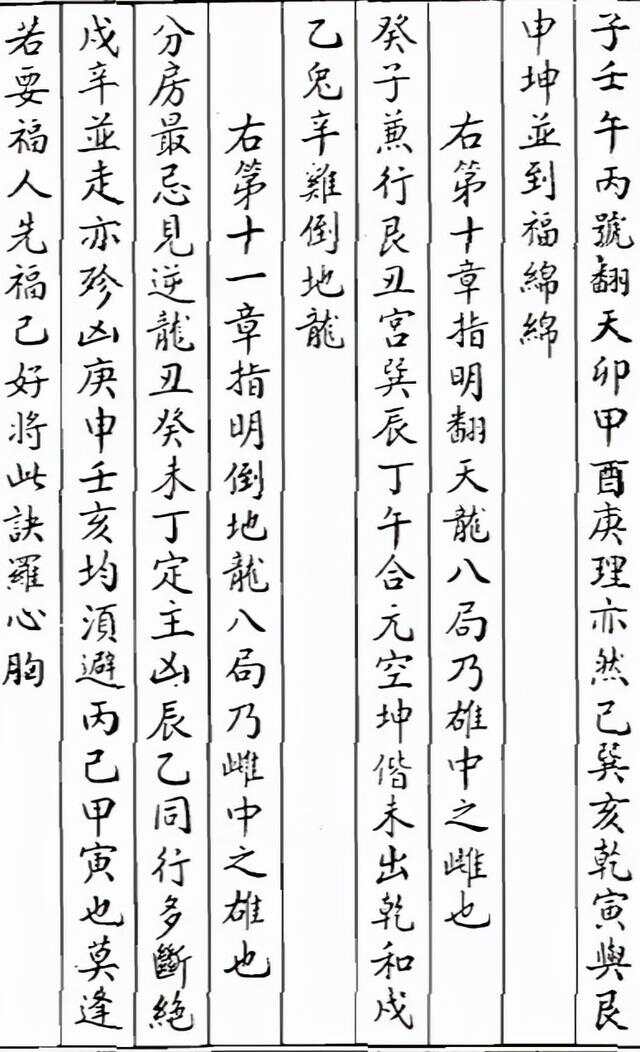 子壬午丙號翻天卯甲酉庚理亦然己巽亥乾寅與艮
申坤並到福綿綿
右第十章指明翻天龍八局乃雄中之雌也
癸子兼行艮丑宮巽辰丁午合元空坤偕未出乾和戌
乙兔辛雞倒地龍
右第十一章指明倒地龍八局乃雌中之雄也
分房最忌見逆龍丑癸未丁定主凶辰乙同行多斷絕
戌辛並走亦殄凶庚申壬亥均須避丙己甲寅也莫逢
若要福人先福己好將此訣羅心胸